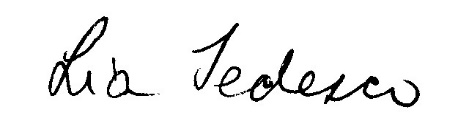 Lia Tedesco